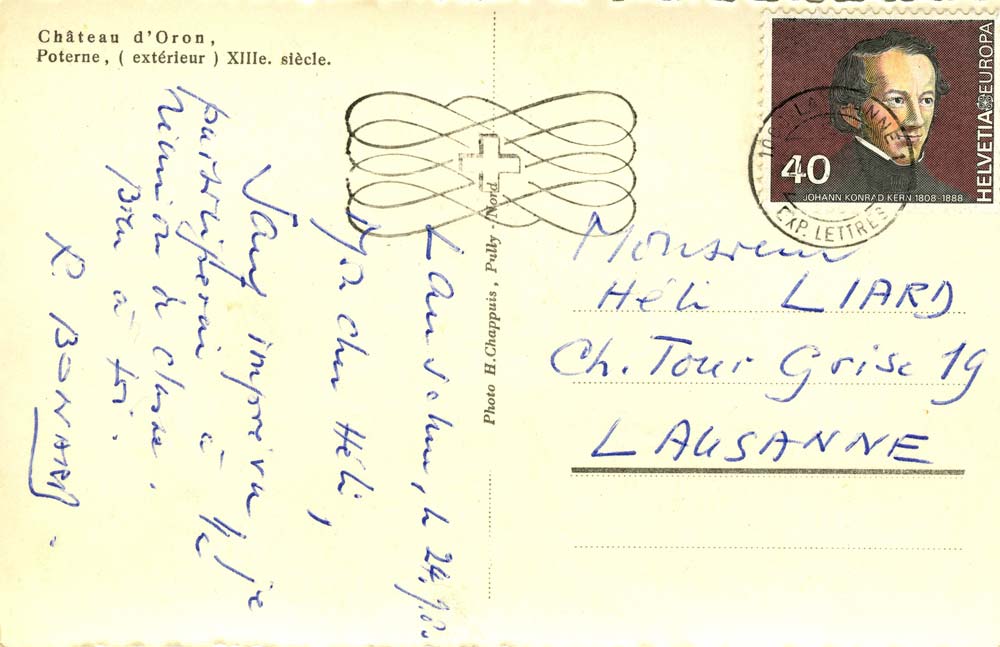 Château d'Oron,
Poterne, ( extérieur ) XIIIe. siècle.
Lausanne, le 24.9.80
Mon cher Héli,
Sauf imprévu je
participerai à la
réunion de classe.
Bien à toi.
P. BONARD.
Photo H. Chappuis, Pully - Nord
HELVETIA EUROPA
40
JOHANN KONRAD KERN 1808-1888
LAUSANNE 1
EXP. LETTRES
Monsieur
Héli LIARD
Ch. Tour Grise 19
LAUSANNE